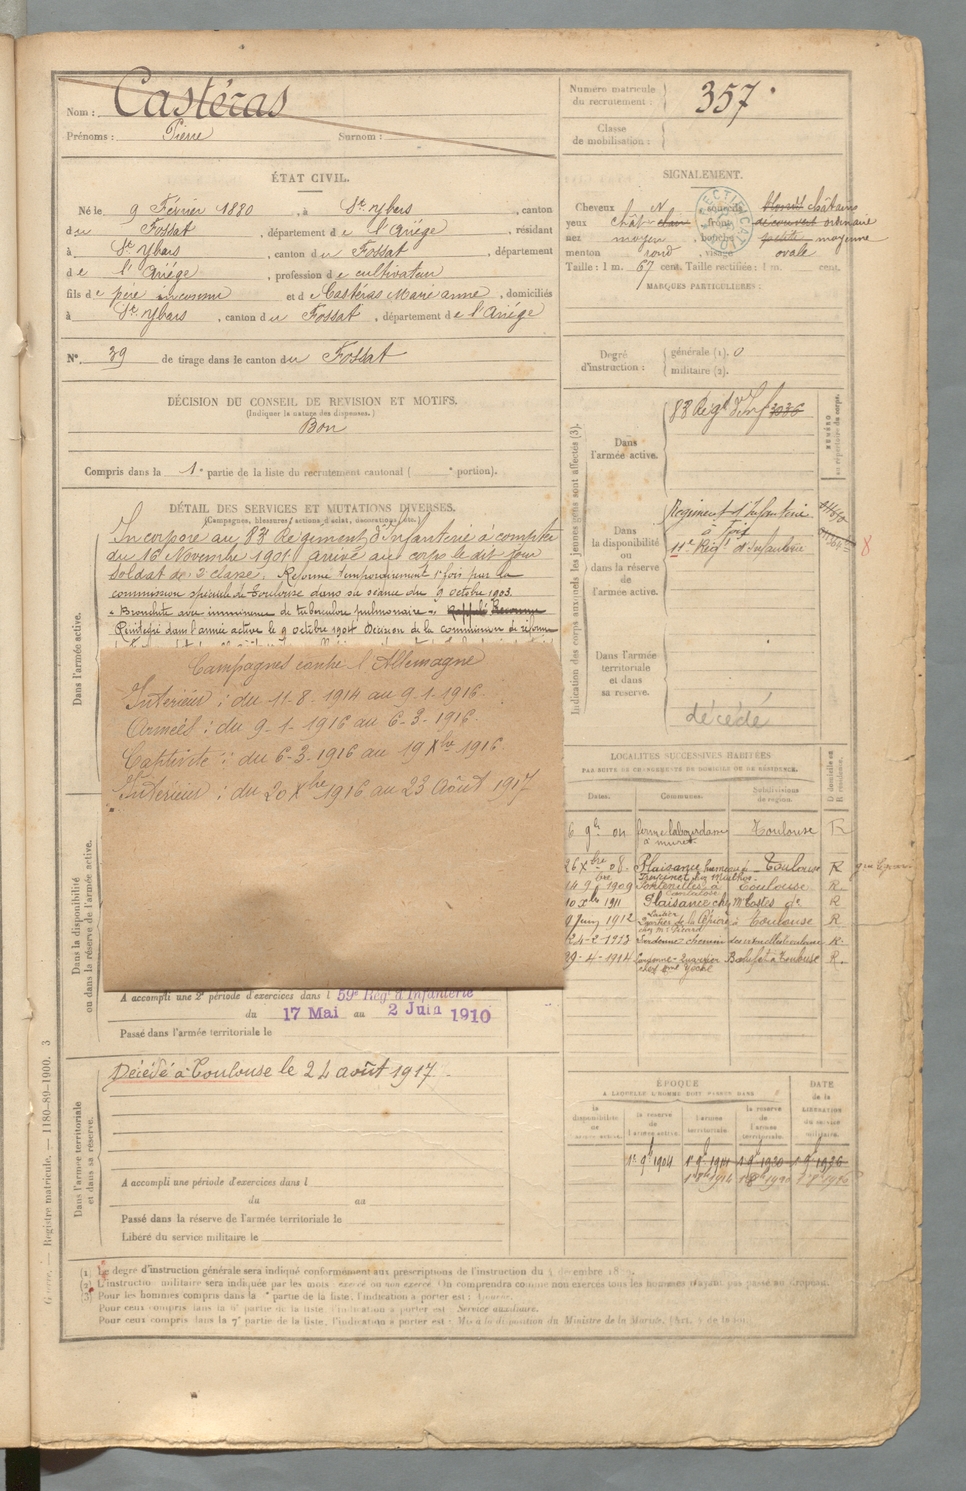 Nom : Castéras
Prénoms : Pierre Surnom :
Numéro matricule du recrutement : 357
Classe de mobilisation :
ÉTAT CIVIL.
Né le 9 Février 1880, à St Ybars, canton
du Fossat, département de l'Ariège, résidant
à St Ybars, canton du Fossat, département
de l'Ariège, profession de cultivateur
fils de père inconnu et de Castéras Marie anne, domiciliés
à St Ybars, canton du Fossat, département de l'Ariège
N°. 39 de tirage dans le canton du Fossat
DÉCISION DU CONSEIL DE REVISION ET MOTIFS.
(Indiquer la nature des dispenses.)
Bon
Compris dans la 1e partie de la liste du recrutement cantonal ( e portion).
SIGNALEMENT.
Cheveux N , sourcils blonds châtains
yeux chât clairs , front découvert ordinaire
nez moyen , bouche petite moyenne
menton rond , visage ovale
Taille : 1 m. 67 cent. Taille rectifiée : 1 m. cent.
MARQUES PARTICULIÈRES :
Degré d'instruction : générale (1). 0
militaire (2).
DÉTAIL DES SERVICES ET MUTATIONS DIVERSES.
(Campagnes, blessures, actions d'éclat, décorations, etc.)
Incorporé au 83 Régiment d'Infanterie à compter
du 16 Novembre 1901 arrivé au corps le dit jour
soldat de 2e classe. Réformé temporairement 1e fois par la
commission spéciale de Toulouse dans sa séance du 9 octobre 1903.
"Bronchite avec imminence de tuberculose pulmonaire". Rappelé Reconnu
Réintégré dans l'armée active le 9 octobre 1904 Décision de la commission de réforme
Campagnes contre l'Allemagne
Intérieur : du 11-8-1914 au 9-1-1916.
Armées : du 9-1-1916 au 6-3-1916.
Captivité : du 6-3-1916 au 19 Xbre 1916.
Intérieur : du 20 Xbre 1916 au 23 Août 1917
A accompli une 2e période d'exercices dans l 59e Régt d'Infanterie
du 17 Mai au 2 Juin 1910
Passé dans l'armée territoriale le
Décédé à Toulouse le 24 août 1917.
A accompli une période d'exercices dans l
du au
Passé dans la réserve de l'armée territoriale le
Libéré du service militaire le
Dans l'armée active.
Dans la disponibilité ou dans la réserve de l'armée active.
Dans l'armée territoriale et dans sa réserve.
Indication des corps auxquels les jeunes gens sont affectés (3).
NUMÉRO au répertoire du corps.
Dans l'armée active.
83 Régt d'Inf 3036
Dans la disponibilité ou dans la réserve de l'armée active.
Régiment d'Infanterie
à Foix
11e Régt d'Infanterie
8
Dans l'armée territoriale et dans sa réserve.
décédé
LOCALITÉS SUCCESSIVES HABITÉES
PAR SUITE DE CHANGEMENTS DE DOMICILE OU DE RÉSIDENCE.
Dates. Communes. Subdivisions de région. D domicile ou R résidence.
6 9bre 04 ferme labourdane à muret Toulouse R
26 Xbre 08 Plaisance Toulouse R
14 9bre 1909 Fontenilles Toulouse R
10 Xbre 1911 Plaisance R
9 Juin 1912 Toulouse R
24-2-1913 R
29-4-1914 Toulouse R
ÉPOQUE
A LAQUELLE L'HOMME DOIT PASSER DANS
DATE de la LIBÉRATION du service militaire.
la disponibilité de l'armée active. la réserve de l'armée active. l'armée territoriale. la réserve de l'armée territoriale.
1e 9bre 1904
Guerre. — Registre matricule. — 1180-89-1900. 3
(1) Le degré d'instruction générale sera indiqué conformément aux prescriptions de l'instruction du décembre 18
(2) L'instruction militaire sera indiquée par les mots exercé ou non exercé. On comprendra comme non exercés tous les hommes n'ayant pas passé au drapeau.
(3) Pour les hommes compris dans la e partie de la liste, l'indication à porter est :
Pour ceux compris dans la 6e partie de la liste, l'indication à porter est : Service auxiliaire.
Pour ceux compris dans la 7e partie de la liste, l'indication à porter est : Mis à la disposition du Ministre de la Marine.